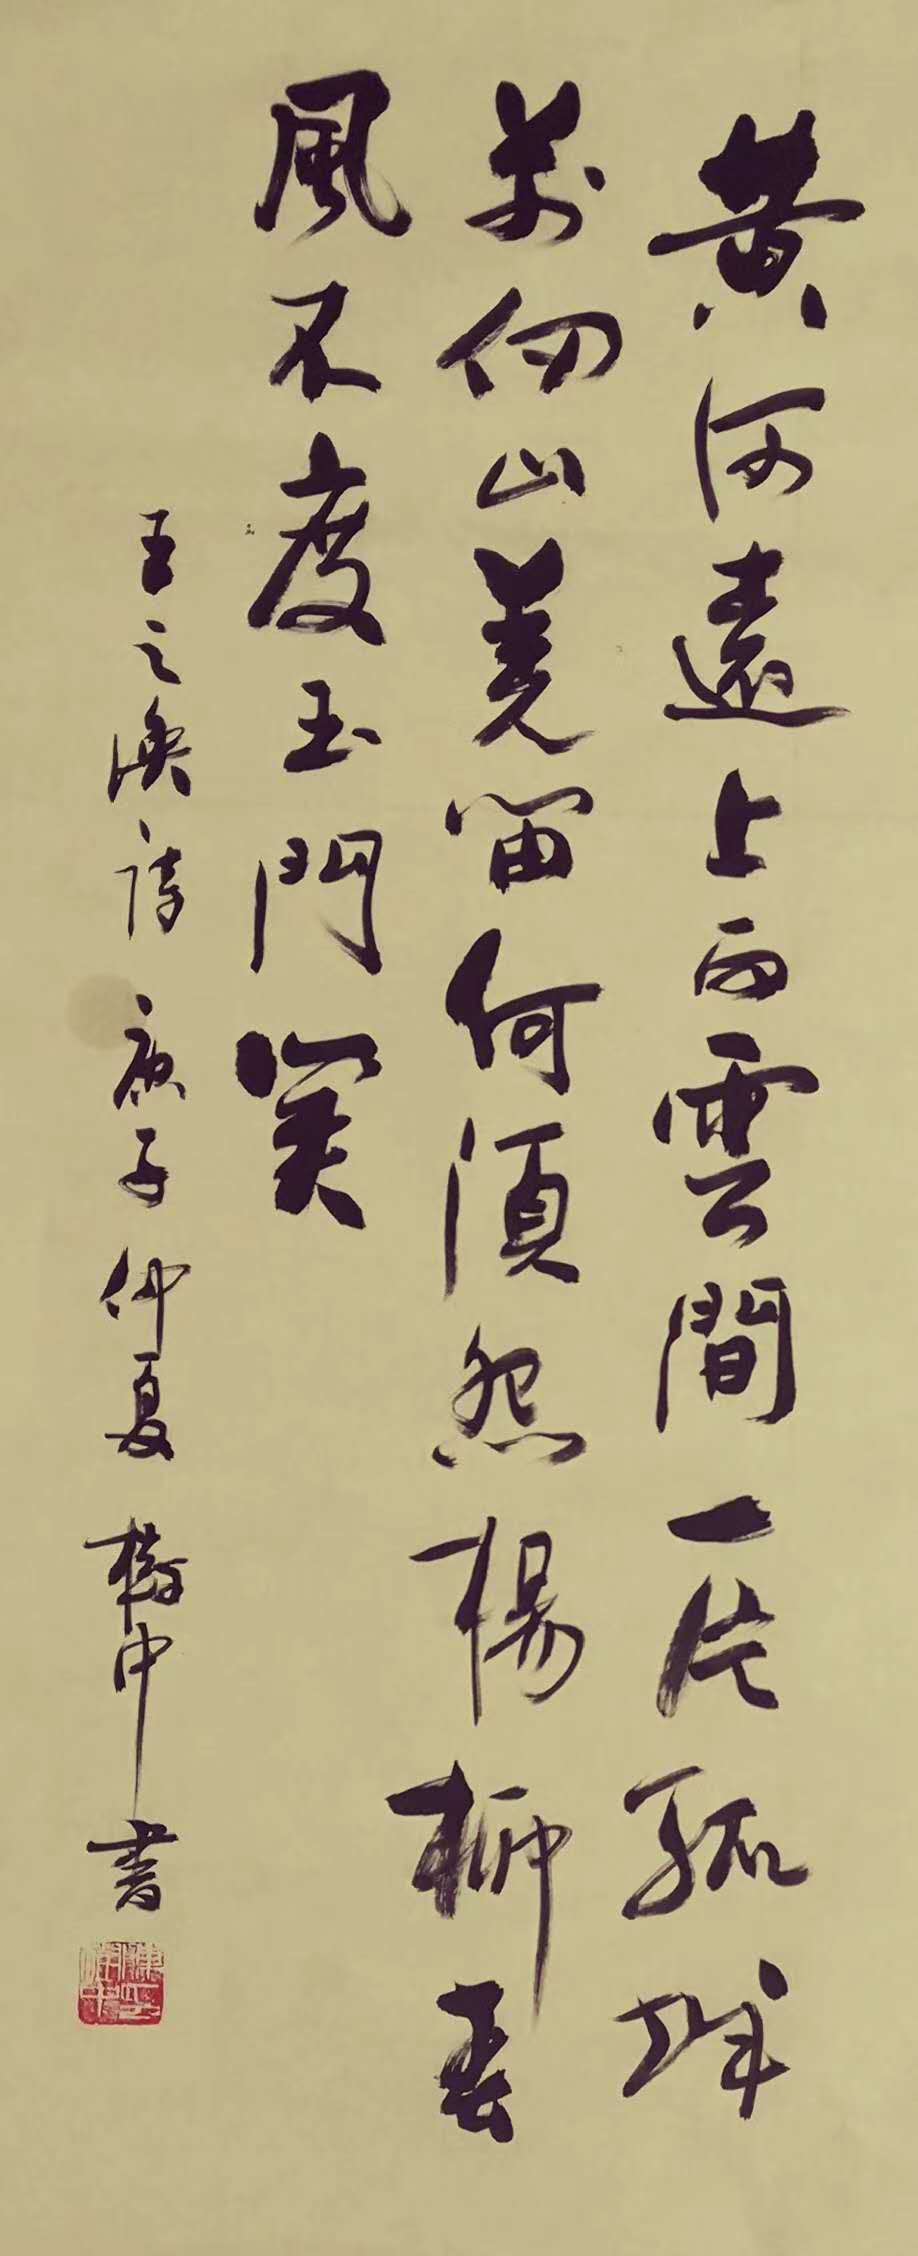 黄河遠上白雲間一片孤城
萬仞山羌笛何須怨楊柳春
風不度玉門關
王之渙詩 庚子仲夏 樹中書